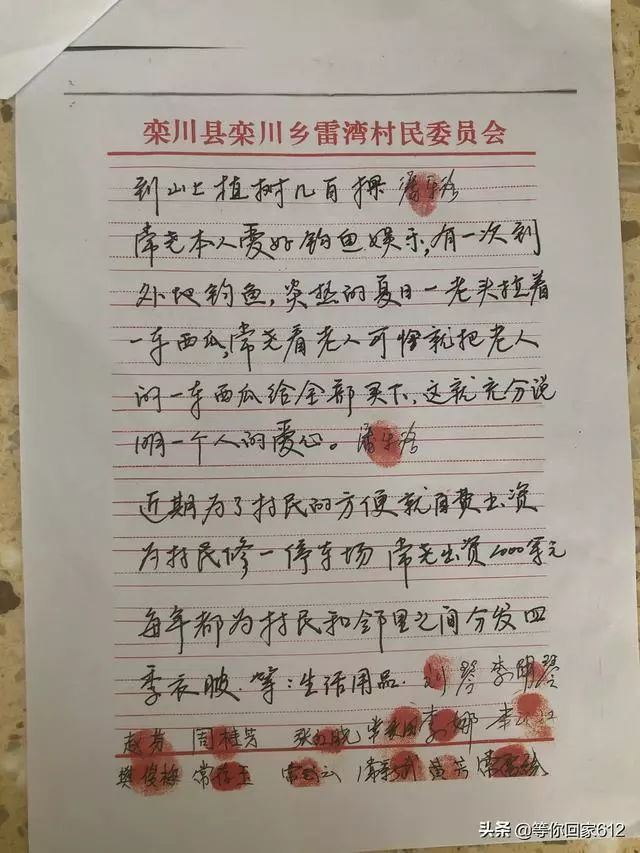 栾川县栾川乡雷湾村民委员会
到山上植树几百棵
常尧本人爱好钓鱼娱乐,有一次到
外地钓鱼,炎热的夏日一老头拉着
一车西瓜,常尧看老人可怜就把老人
的一车西瓜给全部买下,这就充分说
明一个人的爱心。
近期为了村民的方便就自费出资
为村民修一停车场 常尧出资
每年都为村民和邻里之间分发四
季衣服.等:生活用品.
赵芬 周桂芳 李娜
樊俊梅
头条 @等你回家612